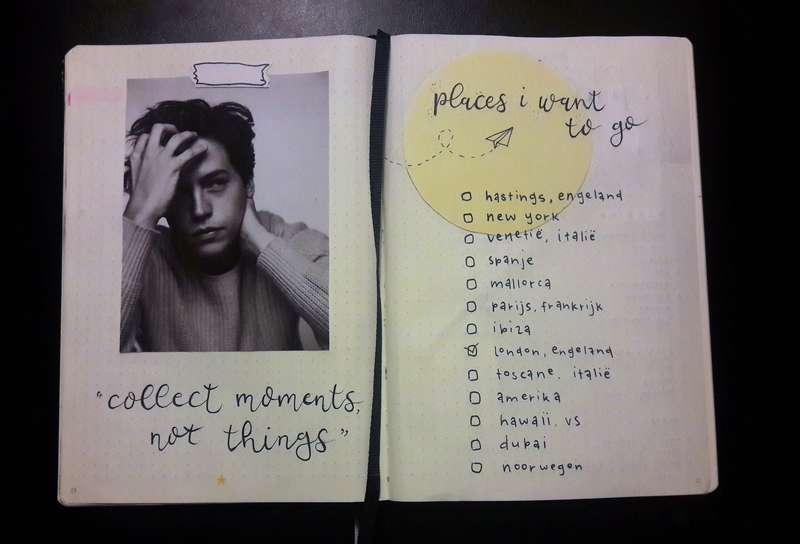 "collect moments,
not things"
places i want
to go
hastings, engeland
new york
venetië, italië
spanje
mallorca
parijs, frankrijk
ibiza
london, engeland
toscane, italië
amerika
hawaii, vs
dubai
noorwegen